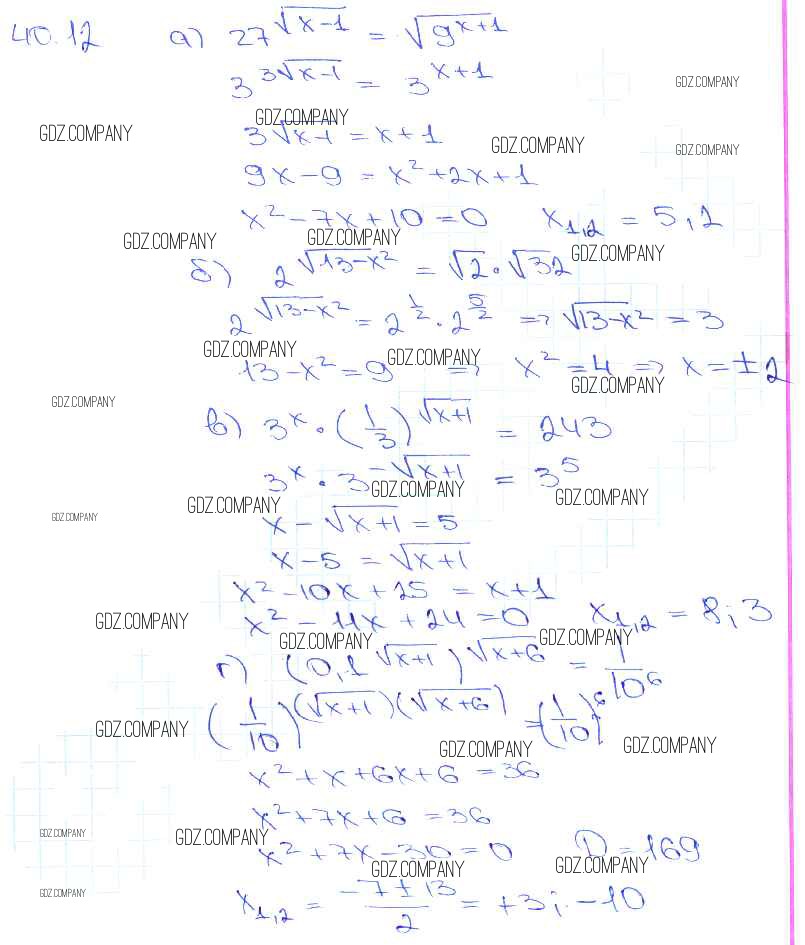 40.12 а) 27^√(x-1) = √(9^(x+1))
3^(3√(x-1)) = 3^(x+1)
GDZ.COMPANY
GDZ.COMPANY
GDZ.COMPANY 3√(x-1) = x+1 GDZ.COMPANY
GDZ.COMPANY
9x-9 = x²+2x+1
x²-7x+10=0 x₁,₂ = 5,2
GDZ.COMPANY GDZ.COMPANY
GDZ.COMPANY
б) 2^√(13-x²) = √2·√32
2^√(13-x²) = 2^(1/2)·2^(5/2) => √(13-x²) = 3
GDZ.COMPANY GDZ.COMPANY
13-x²=9 => x²=4 => x=±2
GDZ.COMPANY
GDZ.COMPANY
в) 3^x·(1/3)^√(x+1) = 243
3^x·3^(-√(x+1)) = 3^5
GDZ.COMPANY GDZ.COMPANY
GDZ.COMPANY
GDZ.COMPANY
x-√(x+1) = 5
x-5 = √(x+1)
x²-10x+25 = x+1
x²-11x+24=0 x₁,₂ = 8;3
GDZ.COMPANY
GDZ.COMPANY GDZ.COMPANY
г) (0,1^√(x+1))^√(x+6) = 1/10⁶
(1/10)^((√(x+1))(√(x+6))) = (1/10)^6
GDZ.COMPANY GDZ.COMPANY GDZ.COMPANY
x²+x+6x+6 = 36
x²+7x+6 = 36
GDZ.COMPANY GDZ.COMPANY
x²+7x-30=0 D=169
GDZ.COMPANY GDZ.COMPANY
GDZ.COMPANY
x₁,₂ = (-7±13)/2 = +3; -10